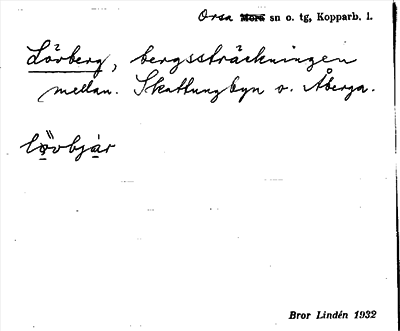 Orsa Mora sn o. tg, Kopparb. l.
Lövberg, bergssträckningen
mellan. Skattungbyn o. Åberga.
lövbjär
Bror Lindén 1932